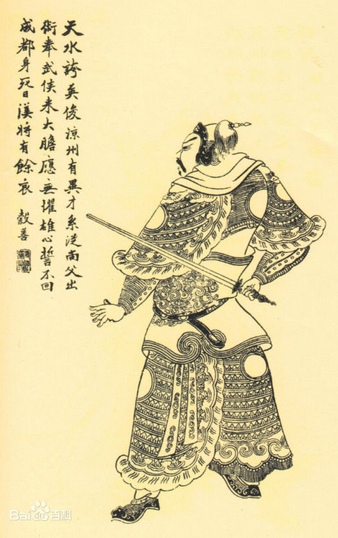 天水誇英俊涼州有異才系從尚父出
術奉武侯來大膽應無懼雄心誓不回
成都身死日漢將有餘哀 穀善
Baidu百科